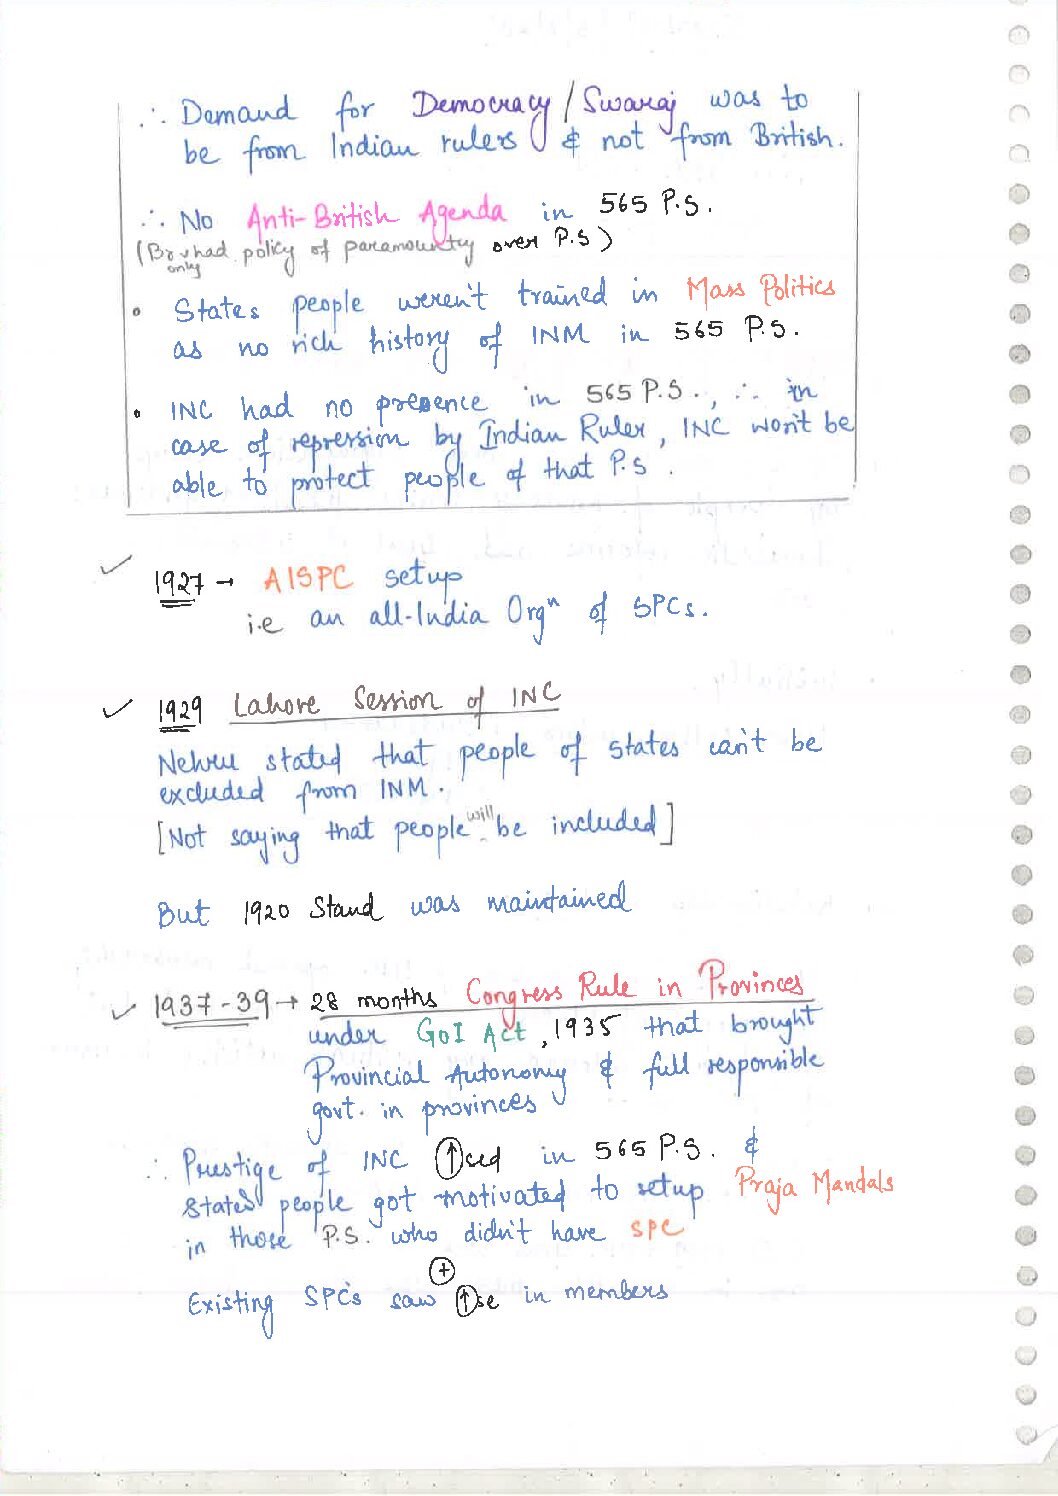 ∴ Demand for Democracy / Swaraj was to
be from Indian rulers & not from British.
∴ No Anti-British Agenda in 565 P.S.
(Br. had only policy of paramountcy over P.S)
• States people weren't trained in Mass Politics
as no rich history of INM in 565 P.S.
• INC had no presence in 565 P.S., ∴ in
case of repression by Indian Ruler, INC won't be
able to protect people of that P.S.
✓ 1927 → AISPC setup
i.e an all-India Orgⁿ of SPCs.
✓ 1929 Lahore Session of INC
Nehru stated that people of states can't be
excluded from INM.
[Not saying that people will be included]
But 1920 Stand was maintained
✓ 1937-39 → 28 months Congress Rule in Provinces
under GoI Act, 1935 that brought
Provincial Autonomy & full responsible
govt. in provinces
∴ Prestige of INC ↑sed in 565 P.S. &
States people got motivated to setup Praja Mandals
in those P.S. who didn't have SPC
+
Existing SPCs saw ↑se in members